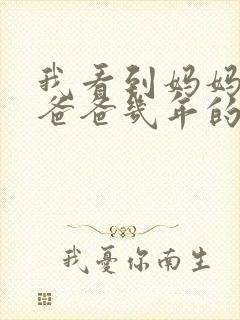 我看到妈妈
爸爸几年的
我忧你南生